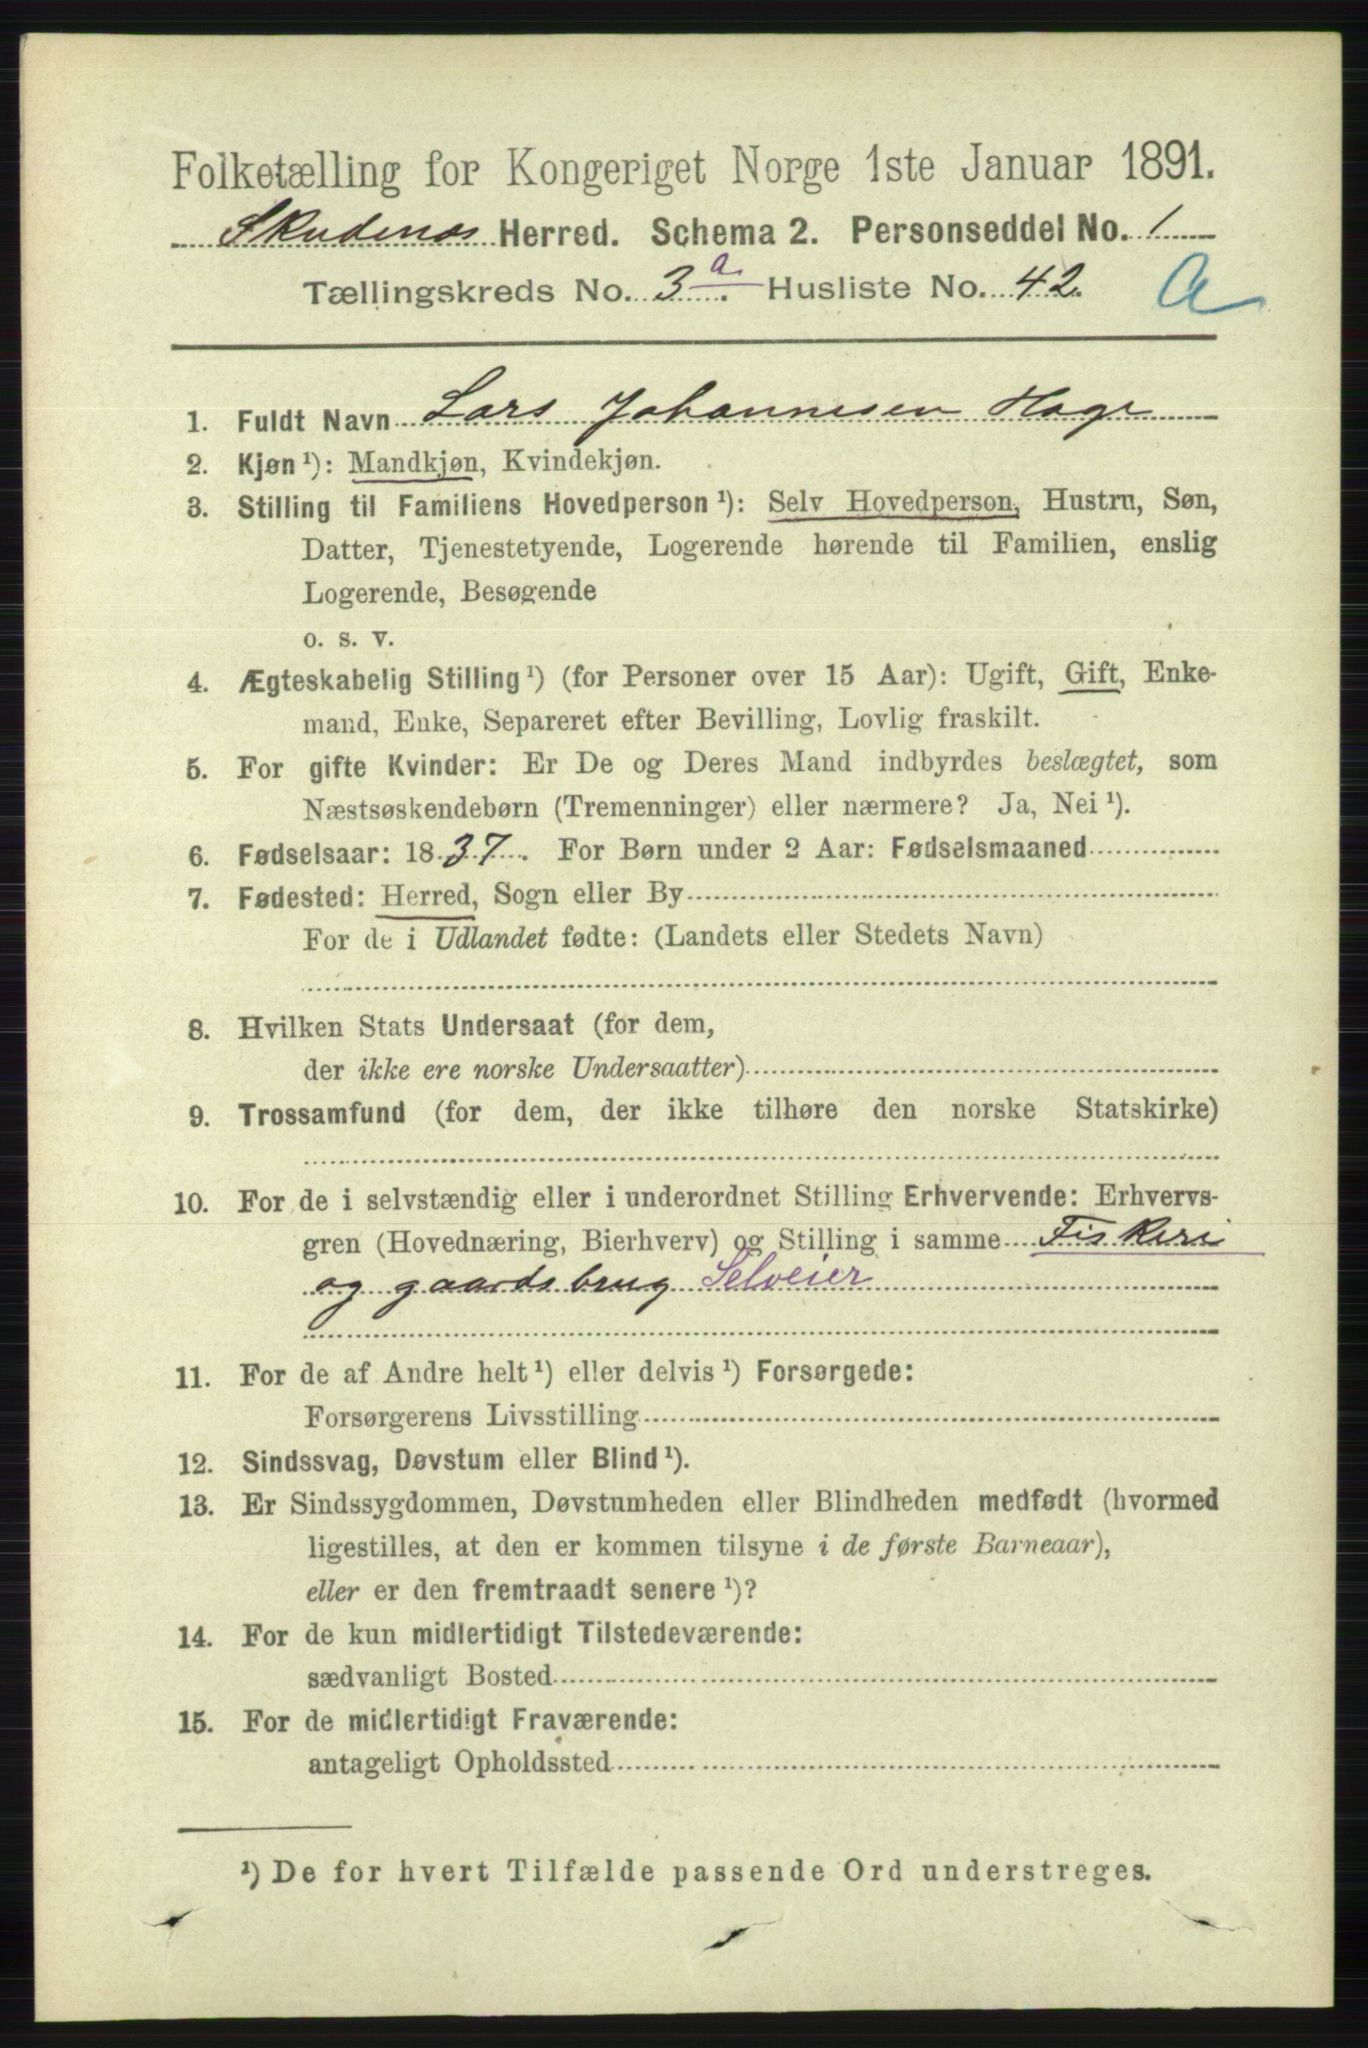 Folketælling for Kongeriget Norge 1ste Januar 1891.
Skudenæs Herred. Schema 2. Personseddel No. 1
Tællingskreds No. 3a. Husliste No. 42. a
1. Fuldt Navn Lars Johannesen Hage
2. Kjøn ¹): Mandkjøn, Kvindekjøn.
3. Stilling til Familiens Hovedperson ¹): Selv Hovedperson, Hustru, Søn,
Datter, Tjenestetyende, Logerende hørende til Familien, enslig
Logerende, Besøgende
o. s. v.
4. Ægteskabelig Stilling ¹) (for Personer over 15 Aar): Ugift, Gift, Enke-
mand, Enke, Separeret efter Bevilling, Lovlig fraskilt.
5. For gifte Kvinder: Er De og Deres Mand indbyrdes beslægtet, som
Næstsøskendebørn (Tremenninger) eller nærmere? Ja, Nei ¹).
6. Fødselsaar: 1837. For Børn under 2 Aar: Fødselsmaaned
7. Fødested: Herred, Sogn eller By
For de i Udlandet fødte: (Landets eller Stedets Navn)
8. Hvilken Stats Undersaat (for dem,
der ikke ere norske Undersaatter)
9. Trossamfund (for dem, der ikke tilhøre den norske Statskirke)
10. For de i selvstændig eller i underordnet Stilling Erhvervende: Erhvervs-
gren (Hovednæring, Bierhverv) og Stilling i samme Fiskeri
og gaardsbrug Selveier
11. For de af Andre helt ¹) eller delvis ¹) Forsørgede:
Forsørgerens Livsstilling
12. Sindssvag, Døvstum eller Blind ¹).
13. Er Sindssygdommen, Døvstumheden eller Blindheden medfødt (hvormed
ligestilles, at den er kommen tilsyne i de første Barneaar),
eller er den fremtraadt senere ¹)?
14. For de kun midlertidigt Tilstedeværende:
sædvanligt Bosted
15. For de midlertidigt Fraværende:
antageligt Opholdssted
¹) De for hvert Tilfælde passende Ord understreges.